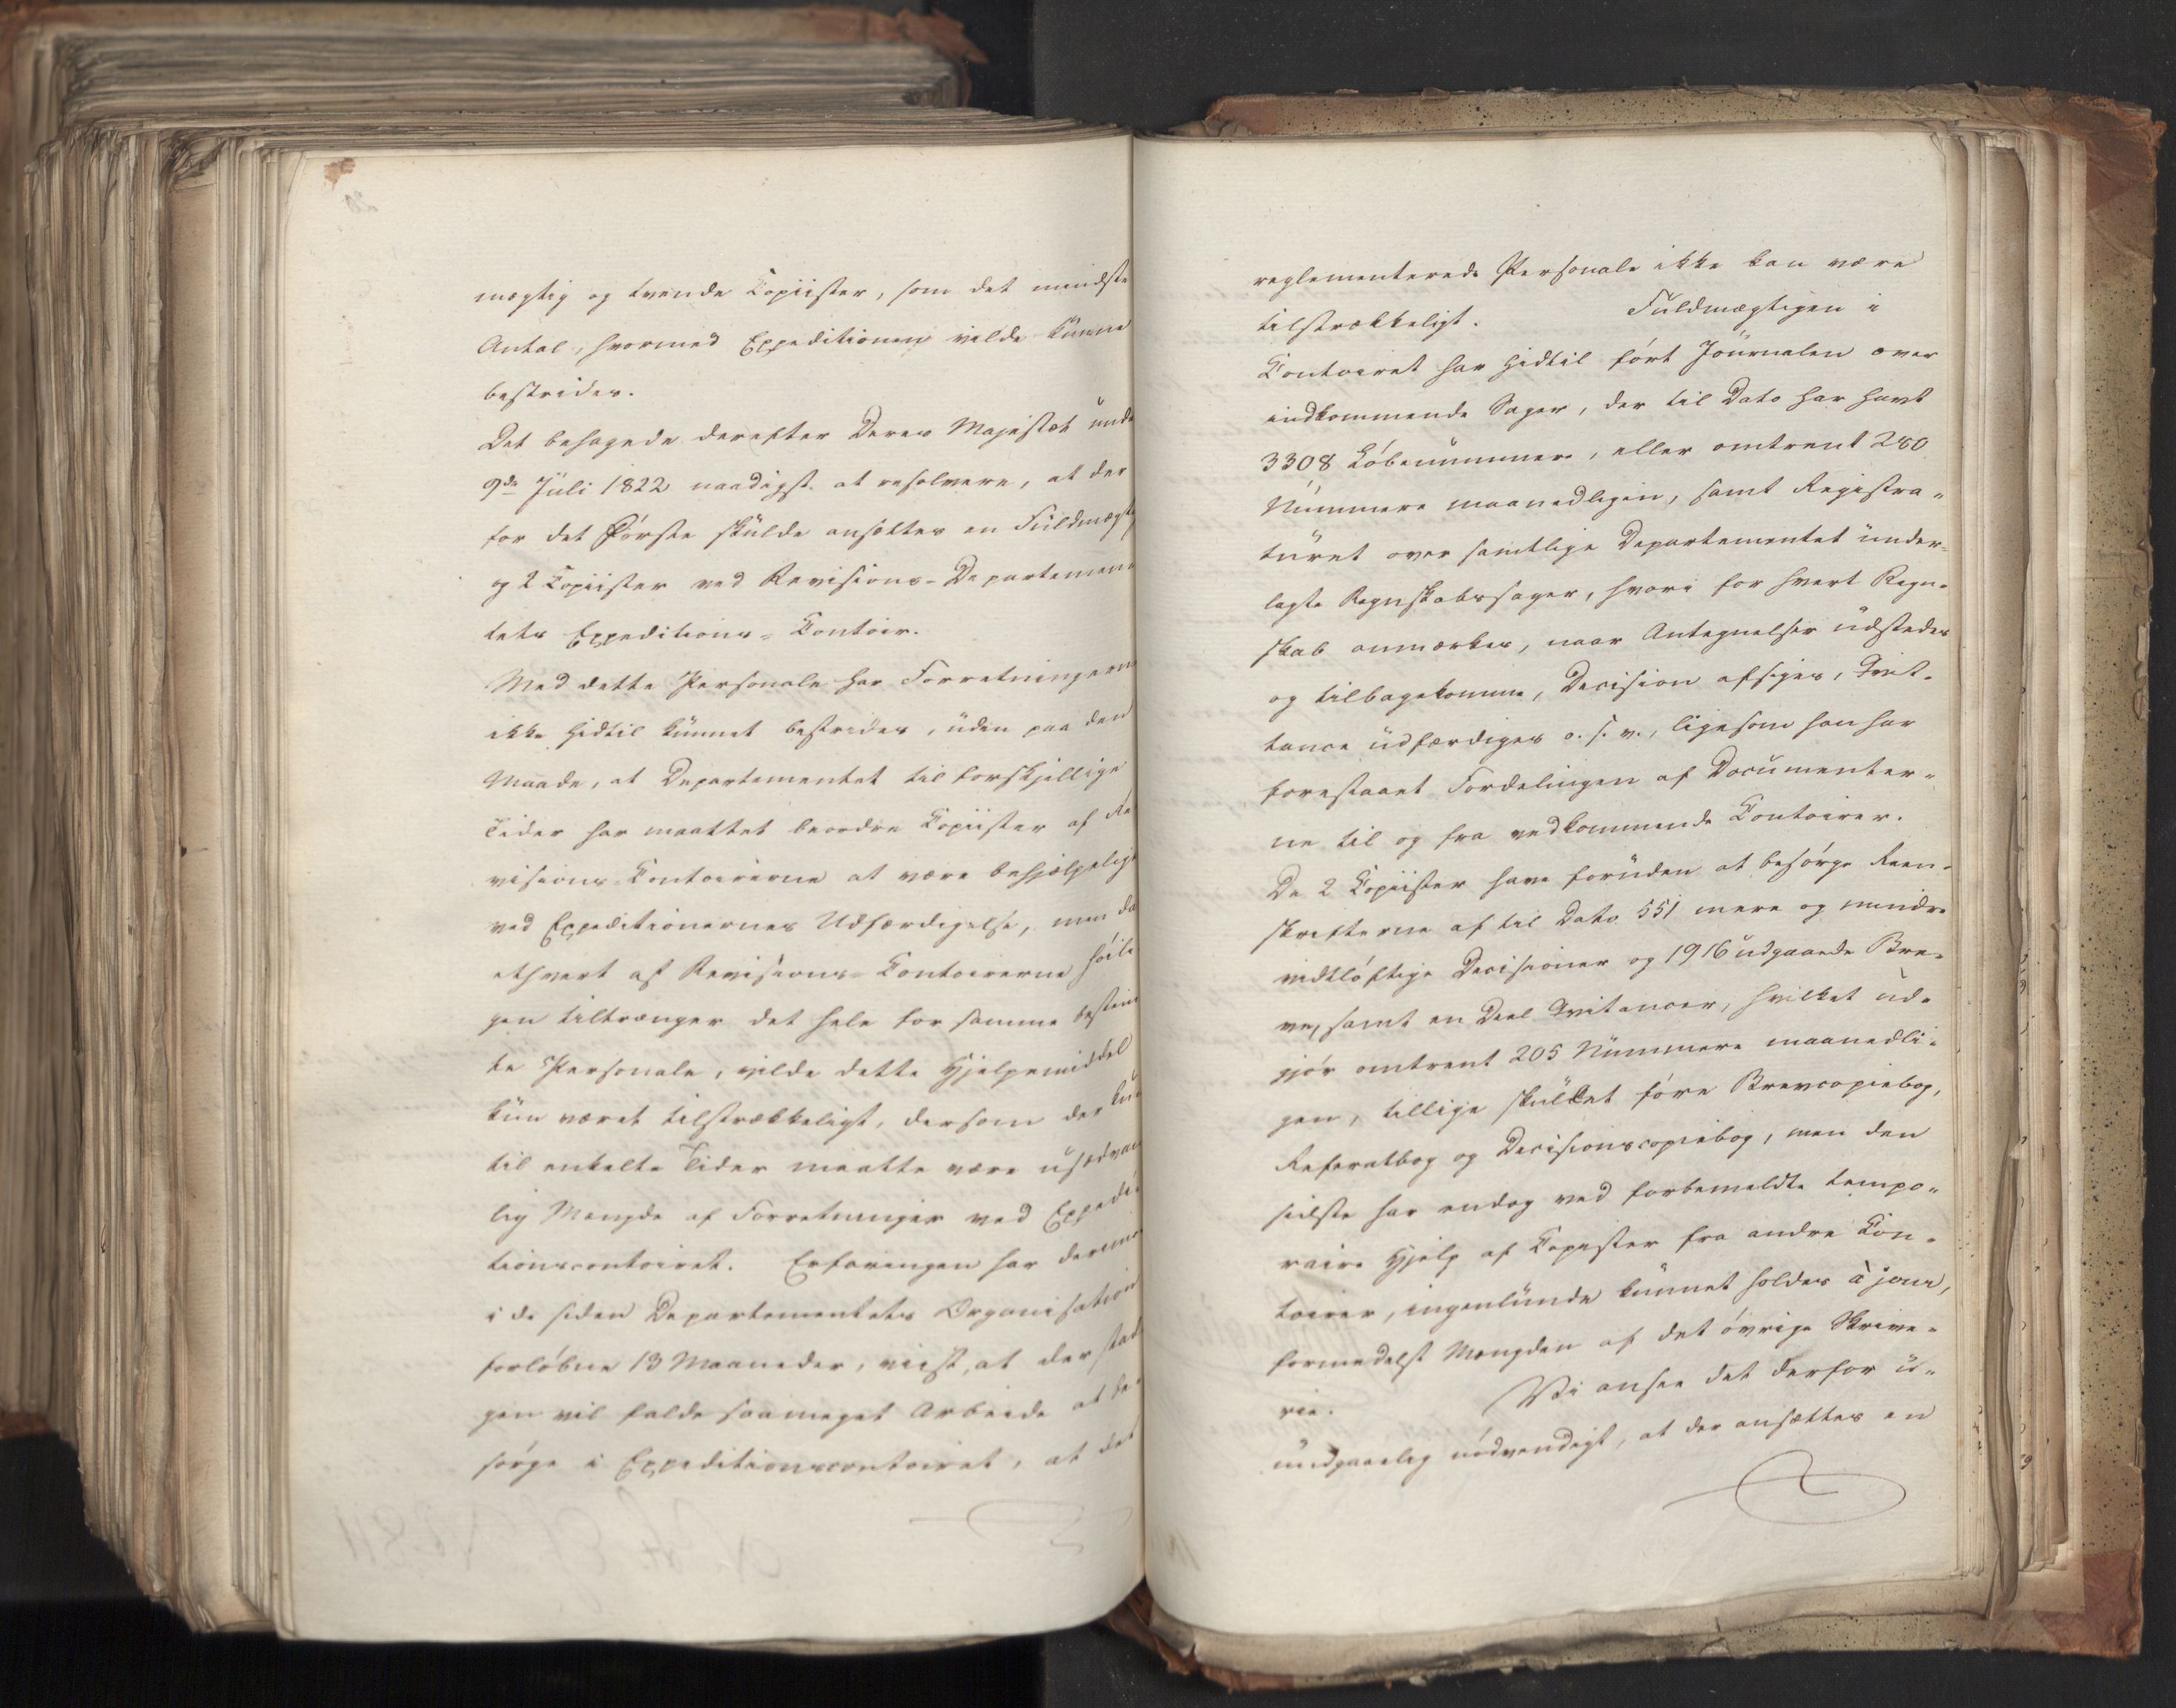 mægtig og tvende Copiister, som det mindste
Antal, hvormed Expeditionen vilde kunne
bestrides.
Det behagede derefter Deres Majestæt unde
9de Juli 1822 naadigst at resolvere, at der
for det Første skulde ansættes en Fuldmægt
og 2 Copiister ved Revisions-Departemen
tets Expeditions-Contoir.
Med dette Personale har Forretningern
ikke hidtil kunnet bestrides, uden paa den
Maade, at Departementet til forskjellige
Tider har maattet beordre Copiister af Re
visions-Contoirerne at være behjælpelig
ved Expeditionernes Udfærdigelse, men da
ethvert af Revisions-Contoirerne høili
gen tiltrænger det hele for samme bestem
te Personale, vilde dette Hjelpemiddel
kun været tilstrækkeligt, dersom der kun
til enkelte Tider maatte være usædvan
lig Mængde af Forretninger ved Expedi-
tionscontoiret. Erfaringen har derimo
i de siden Departementets Organisation
forløbne 13 Maaneder, viist, at der stad
gen vil falde saameget Arbeide at be-
sørge i Expeditionscontoiret, at det
reglementerede Personale ikke kan være
tilstrækkeligt. Fuldmægtigen i
Contoiret har hidtil ført Journalen over
indkommende Sager, der til Dato har havt
3308 Løbenummere, eller omtrent 280
Nummere maanedligen, samt Registra-
turet over samtlige Departementet under-
lagte Regnskabssager, hvori for hvert Regn-
skab anmærkes, naar Antegnelser udstedes
og tilbagekomme, Decision afsiges, Qvit-
tance udfærdiges o. s. v., ligesom han har
forestaaet Fordelingen af Documenter-
ne til og fra vedkommende Contoirer.
De 2 Copiister have foruden at besørge Reen-
skrifterne af til Dato 551 mere og mindre
vidtløftige Decisioner og 1916 udgaaede Bre-
ve, samt en Deel Qvitancer, hvilket ud-
gjør omtrent 205 Nummere maanedli-
gen, tillige skullet føre Brevcopiebog,
Referatbog og Decisionscopiebog, men den
sidste har endog ved forbemeldte tempo-
raire Hjelp af Copister fra andre Con-
toirer, ingenlunde kunnet holdes à jour,
formedelst Mængden af det øvrige Skrive-
rie. Vi ansee det derfor u-
undgaaelig nødvendigt, at der ansættes en